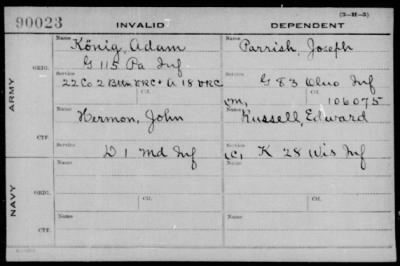 (3-H-3)
90023 INVALID DEPENDENT
Name König, Adam Name Parrish, Joseph
ORIG. G 115 Pa Inf
Service 22 Co 2 Btln VRC + A 18 VRC Service G 83 Ohio Inf
ARMY Ctf. Ctf.
(M) 106075
Name Hermon, John Name Russell, Edward
CTF.
Service D 1 Md Inf Service (C) K 28 Wis Inf
Ctf. Ctf.
Name Name
ORIG.
NAVY
Service Ctf. Service Ctf.
Name Name
CTF.